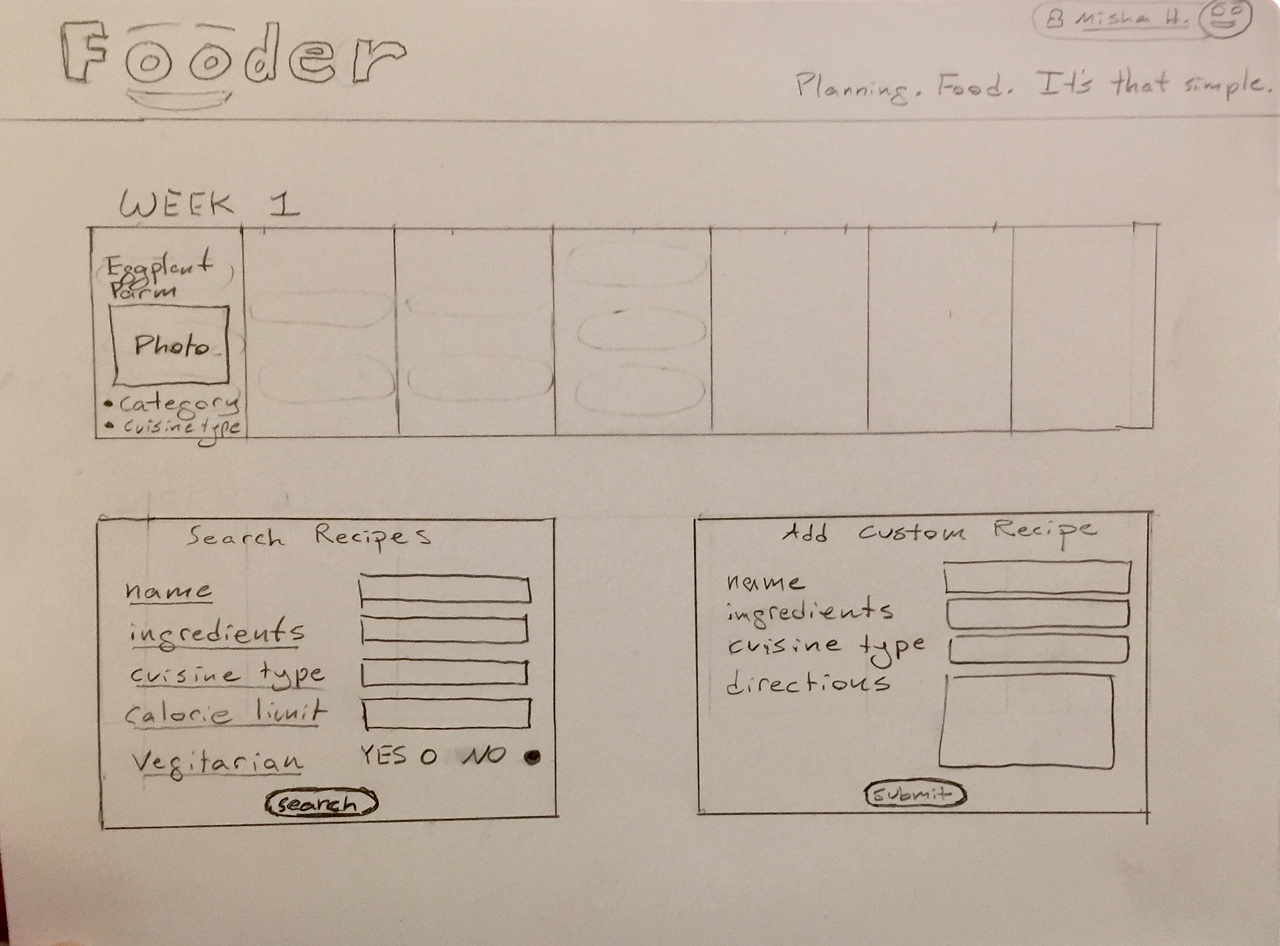 Fooder
Misha H.
Planning. Food. It's that simple.
WEEK 1
Eggplant
Parm
Photo
• Category
• cuisine type
Search Recipes
name
ingredients
cuisine type
Calorie limit
Vegitarian YES NO
search
Add Custom Recipe
name
ingredients
cuisine type
directions
submit